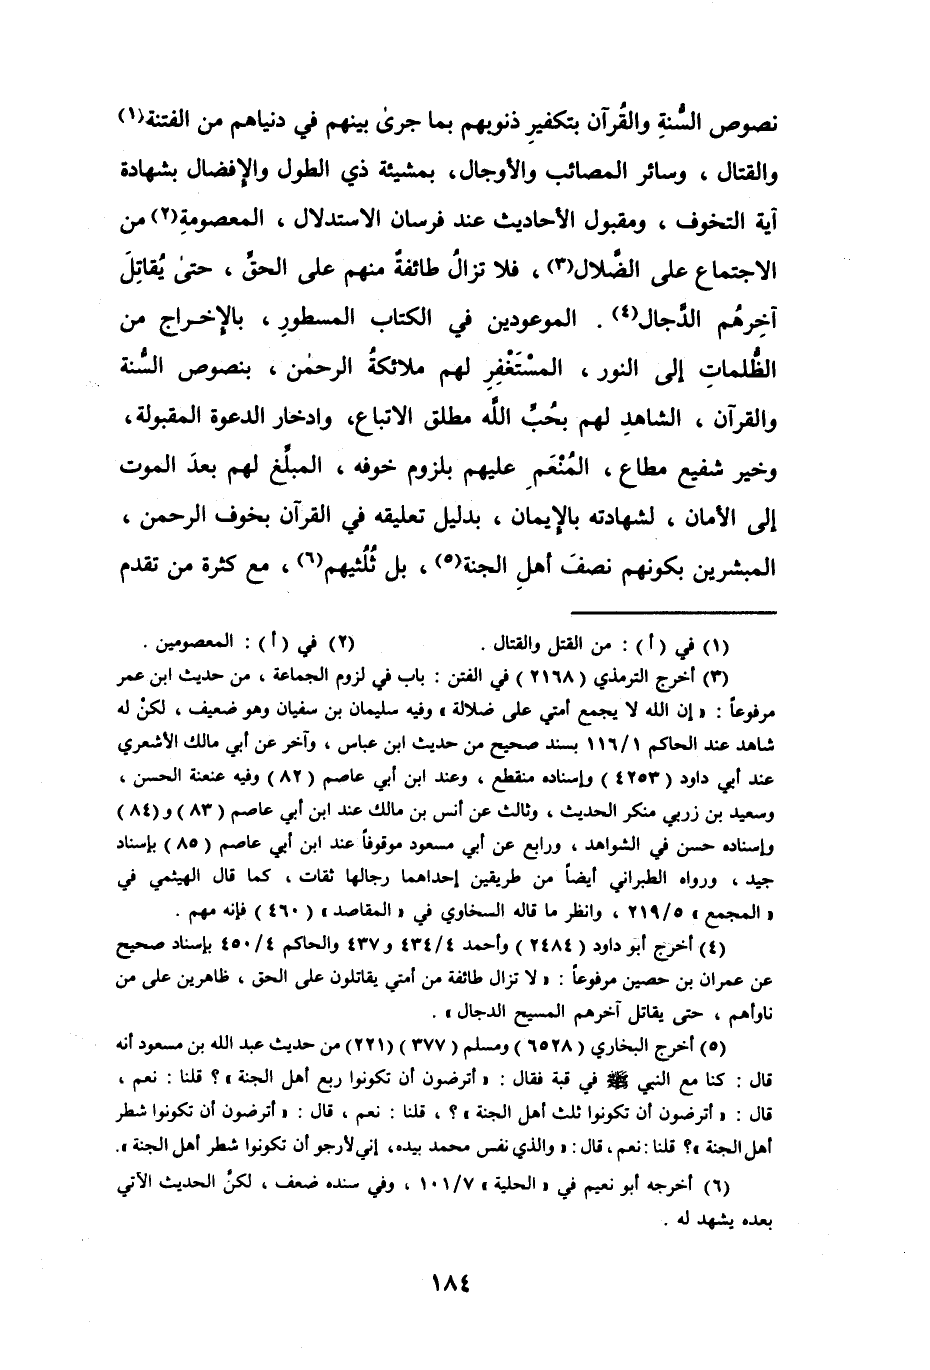 نصوص السُّنةِ والقُرآن بتكفيرِ ذنوبهم بما جرىٰ بينهم في دنياهم من الفتنة(١)
والقتال ، وسائر المصائب والأوجال، بمشيئة ذي الطول والإفضال بشهادة
آية التخوف ، ومقبول الأحاديث عند فرسان الاستدلال ، المعصومةِ(٢) من
الاجتماع على الضَّلال(٣) ، فلا تزالُ طائفةٌ منهم على الحقِّ ، حتىٰ يُقاتِلَ
آخِرهُم الدَّجال(٤) . الموعودين في الكتاب المسطورِ ، بالإخـراج من
الظُّلماتِ إلى النور ، المسْتَغْفِرِ لهم ملائكةُ الرحمٰن ، بنصوص السُّنة
والقرآن ، الشاهدِ لهم بحُبِّ اللَّه مطلق الاتباع، وادخار الدعوة المقبولة،
وخير شفيع مطاع ، المُنْعَمِ عليهم بلزوم خوفه ، المبلِّغ لهم بعدَ الموت
إلى الأمان ، لشهادته بالإيمان ، بدليل تعليقه في القرآن بخوف الرحمن ،
المبشرين بكونهم نصفَ أهلِ الجنة(٥) ، بل ثُلُثيهم(٦) ، مع كثرة من تقدم
(١) في (أ) : من القتل والقتال .
(٢) في (أ) : المعصومين .
(٣) أخرج الترمذي (٢١٦٨) في الفتن : باب في لزوم الجماعة ، من حديث ابن عمر
مرفوعاً : « إن الله لا يجمع أمتي على ضلالة » وفيه سليمان بن سفيان وهو ضعيف ، لكنْ له
شاهد عند الحاكم ١١٦/١ بسند صحيح من حديث ابن عباس ، وآخر عن أبي مالك الأشعري
عند أبي داود (٤٢٥٣) وإسناده منقطع ، وعند ابن أبي عاصم (٨٢) وفيه عنعنة الحسن ،
وسعيد بن زربي منكر الحديث ، وثالث عن أنس بن مالك عند ابن أبي عاصم (٨٣) و(٨٤)
وإسناده حسن في الشواهد ، ورابع عن أبي مسعود موقوفاً عند ابن أبي عاصم (٨٥) بإسناد
جيد ، ورواه الطبراني أيضاً من طريقين إحداهما رجالها ثقات ، كما قال الهيثمي في
« المجمع » ٢١٩/٥ ، وانظر ما قاله السخاوي في « المقاصد » (٤٦٠) فإنه مهم .
(٤) أخرج أبو داود (٢٤٨٤) وأحمد ٤٣٤/٤ و٤٣٧ والحاكم ٤٥٠/٤ بإسناد صحيح
عن عمران بن حصين مرفوعاً : « لا تزال طائفة من أمتي يقاتلون على الحق ، ظاهرين على من
ناوأهم ، حتى يقاتل آخرهم المسيح الدجال » .
(٥) أخرج البخاري (٦٥٢٨) ومسلم (٣٧٧) (٢٢١) من حديث عبد الله بن مسعود أنه
قال : كنا مع النبي ﷺ في قبة فقال : « أترضون أن تكونوا ربع أهل الجنة »؟ قلنا : نعم ،
قال : « أترضون أن تكونوا ثلث أهل الجنة »؟ ، قلنا : نعم ، قال : « أترضون أن تكونوا شطر
أهل الجنة »؟ قلنا : نعم ، قال : « والذي نفس محمد بيده، إني لأرجو أن تكونوا شطر أهل الجنة ».
(٦) أخرجه أبو نعيم في « الحلية » ١٠١/٧ ، وفي سنده ضعف ، لكنَّ الحديث الآتي
بعده يشهد له .
١٨٤